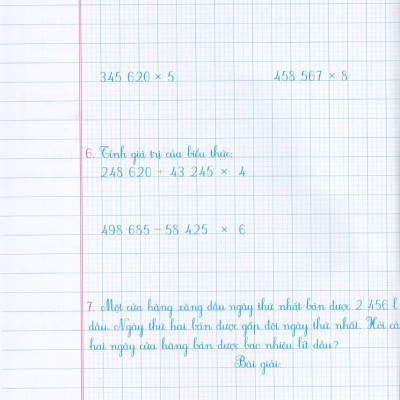 345 620 × 5 458 567 × 8
6. Tính giá trị của biểu thức:
248 620 + 43 245 × 4
498 685 - 58 425 × 6
7. Một cửa hàng xăng dầu ngày thứ nhất bán được 2 456 l
dầu. Ngày thứ hai bán được gấp đôi ngày thứ nhất. Hỏi cả
hai ngày cửa hàng bán được bao nhiêu lít dầu?
Bài giải: